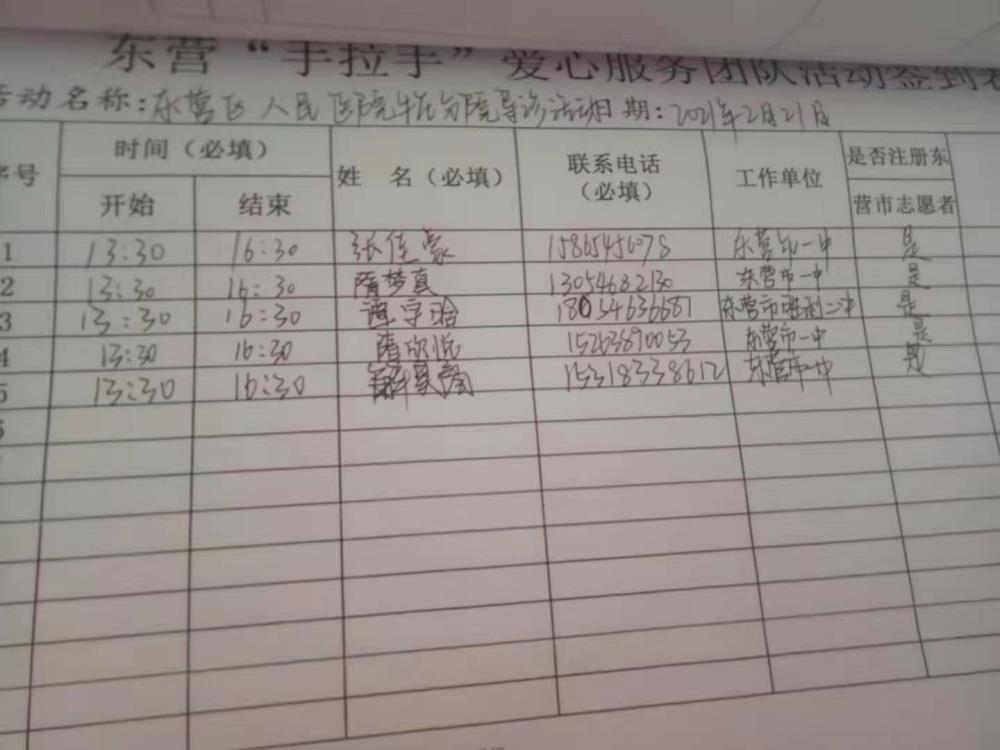 东营“手拉手”爱心服务团队活动签到表
活动名称:东营区人民医院牛庄分院导诊活动日期:2021年2月21日
序号 时间(必填) 姓 名(必填) 联系电话(必填) 工作单位 是否注册东营市志愿者
开始 结束
1 13:30 16:30 张佳豪 15865456078 东营市一中 是
2 13:30 16:30 隋梦真 13054682130 东营市一中 是
3 13:30 16:30 谭字晗 18054636687 东营市胜利二中 是
4 13:30 16:30 隋欣悦 15263890053 东营市一中 是
5 13:30 16:30 15318338612 东营市一中 是
6